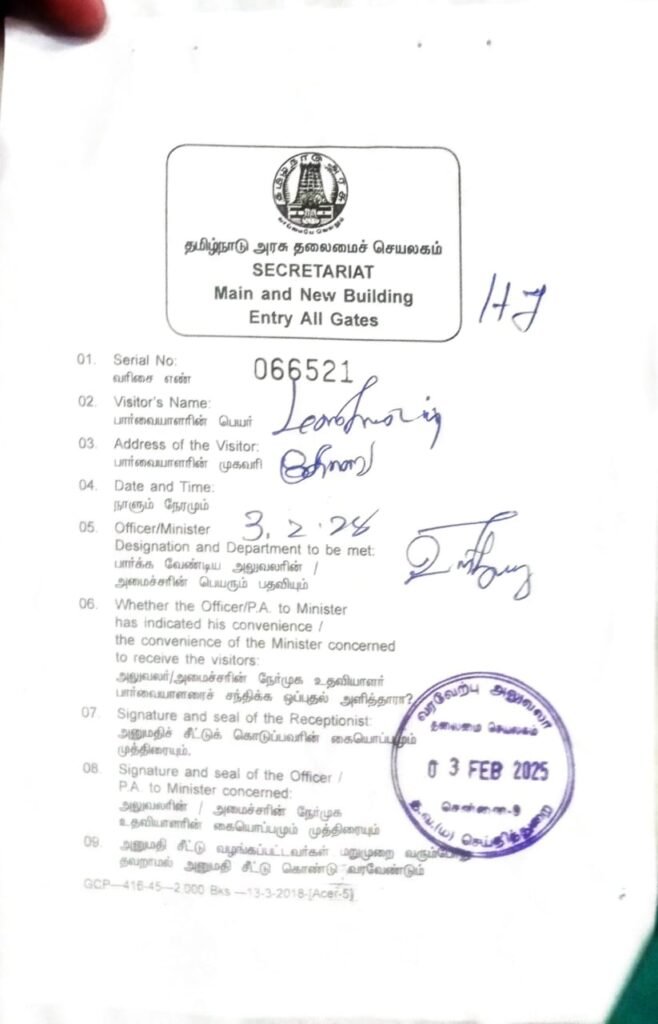 தமிழ்நாடு அரசு
வாய்மையே வெல்லும்
தமிழ்நாடு அரசு தலைமைச் செயலகம்
SECRETARIAT
Main and New Building
Entry All Gates
01. Serial No: 066521
வரிசை எண்
02. Visitor's Name:
பார்வையாளரின் பெயர்
03. Address of the Visitor:
பார்வையாளரின் முகவரி
04. Date and Time:
நாளும் நேரமும்
05. Officer/Minister 3.2.28
Designation and Department to be met:
பார்க்க வேண்டிய அலுவலரின் /
அமைச்சரின் பெயரும் பதவியும்
06. Whether the Officer/P.A. to Minister
has indicated his convenience /
the convenience of the Minister concerned
to receive the visitors:
அலுவலர்/அமைச்சரின் நேர்முக உதவியாளர்
பார்வையாளரைச் சந்திக்க ஒப்புதல் அளித்தாரா?
07. Signature and seal of the Receptionist:
அனுமதிச் சீட்டுக் கொடுப்பவரின் கையொப்பமும்
முத்திரையும்.
08. Signature and seal of the Officer /
P.A. to Minister concerned:
அலுவலரின் / அமைச்சரின் நேர்முக
உதவியாளரின் கையொப்பமும் முத்திரையும்
09. அனுமதி சீட்டு வழங்கப்பட்டவர்கள் மறுமுறை வரும்போது
தவறாமல் அனுமதி சீட்டு கொண்டு வரவேண்டும்
GCP—416-45—2,000 Bks —13-3-2018-[Acer-5]
வரவேற்பு அலுவலர்
தலைமை செயலகம்
03 FEB 2025
சென்னை-9
செய்தித்துறை